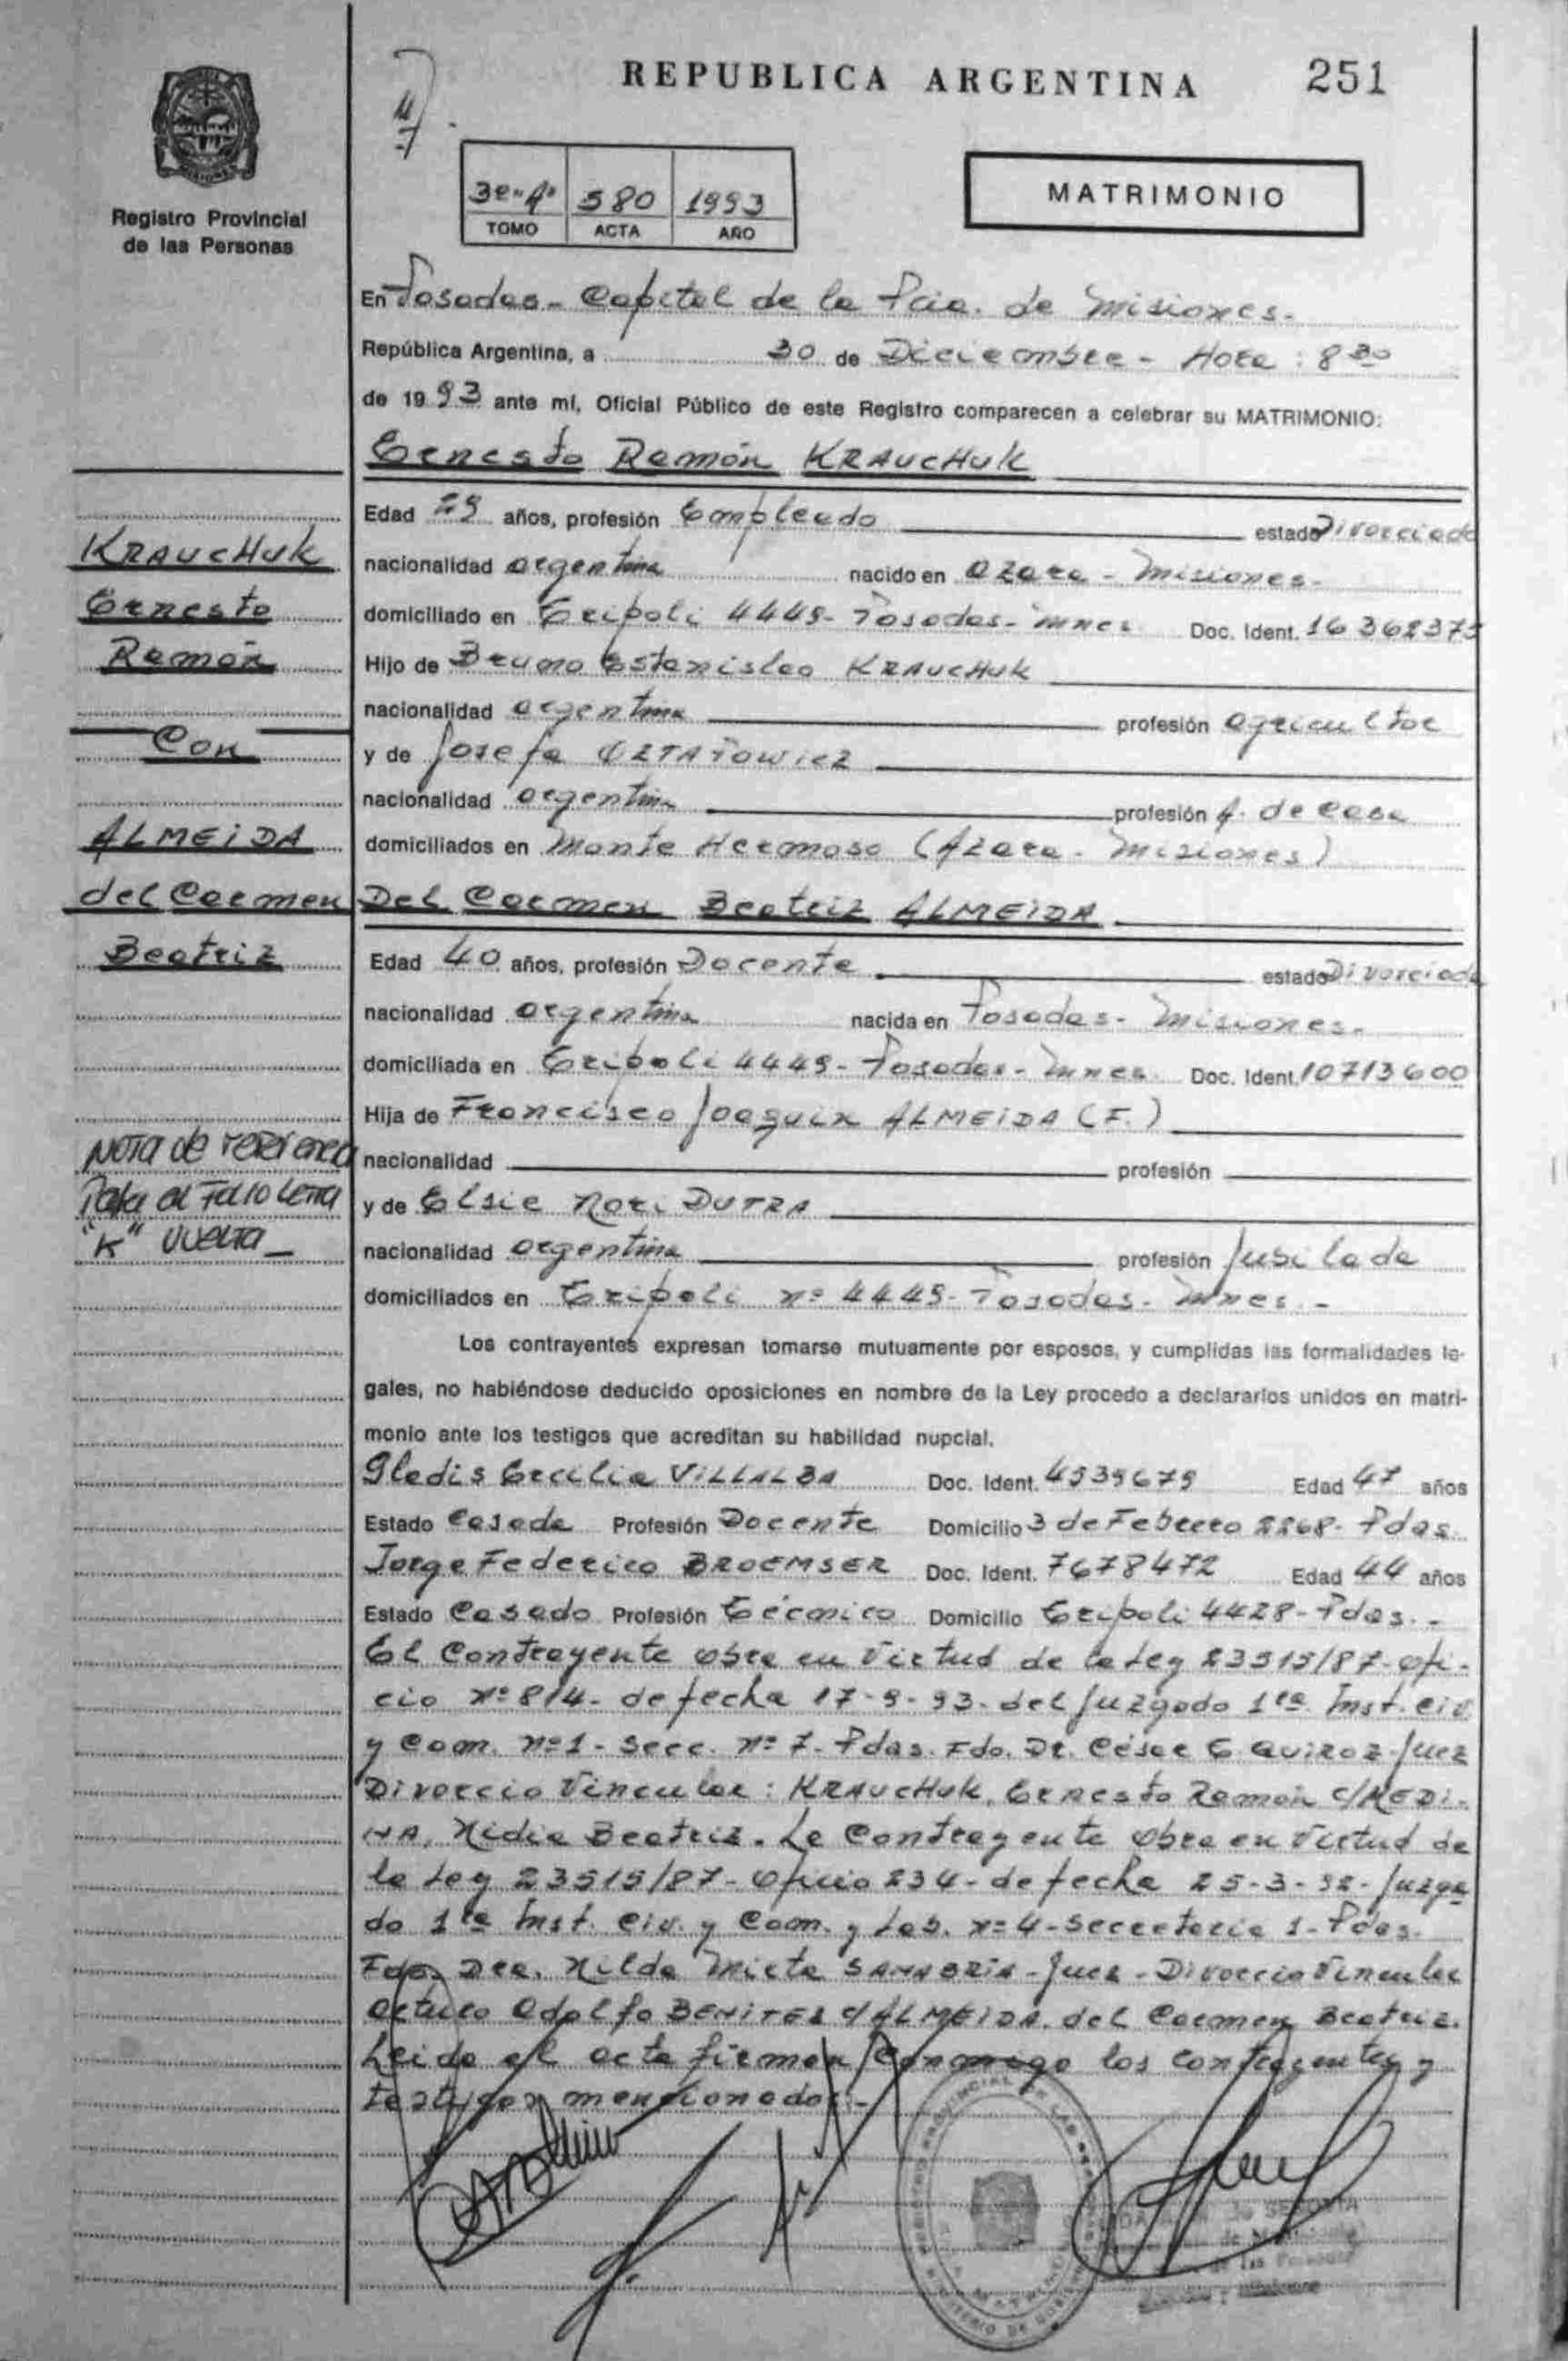 REPUBLICA ARGENTINA 251
Registro Provincial
de las Personas
580 1993
TOMO ACTA AÑO
MATRIMONIO
En Posadas - Capital de la Pcia. de Misiones.
República Argentina, a 30 de Diciembre - Hora: 8 30
de 1993 ante mí, Oficial Público de este Registro comparecen a celebrar su MATRIMONIO:
Ernesto Ramón KRAUCHUK
Edad 29 años, profesión Empleado estado Divorciado
nacionalidad argentina nacido en Azara - Misiones.
domiciliado en Tripoli 4449 - Posadas - Mnes. Doc. Ident. 16 362375
Hijo de Bruno Estanislao KRAUCHUK
nacionalidad argentina profesión agricultor
y de Josefa
nacionalidad argentina profesión A. de casa
domiciliados en Monte Hermoso (Azara - Misiones)
Del Carmen Beatriz ALMEIDA
Edad 40 años, profesión Docente estado Divorciada
nacionalidad argentina nacida en Posadas - Misiones.
domiciliada en Tripoli 4449 - Posadas - Mnes. Doc. Ident. 10713600
Hija de Francisco Joaquin ALMEIDA (F.)
nacionalidad profesión
y de Elsie Nori DUTRA
nacionalidad argentina profesión Jubilada
domiciliados en Tripoli nº 4449 - Posadas - Mnes. -
KRAUCHUK
Ernesto
Ramón
Con
ALMEIDA
del Carmen
Beatriz
Nota de referencia
Pasa al Folio Letra
"K" vuelta -
Los contrayentes expresan tomarse mutuamente por esposos, y cumplidas las formalidades le-
gales, no habiéndose deducido oposiciones en nombre de la Ley procedo a declararlos unidos en matri-
monio ante los testigos que acreditan su habilidad nupcial.
Gladis Cecilia VILLALBA Doc. Ident. 4939679 Edad 47 años
Estado Casada Profesión Docente Domicilio 3 de Febrero 2268 - Pdas.
Jorge Federico BROEMSER Doc. Ident. 7678472 Edad 44 años
Estado Casado Profesión Técnico Domicilio Tripoli 4428 - Pdas. -
El Contrayente obra en Virtud de la Ley 23515/87 - ofi-
cio nº 814 - de fecha 17-9-93 - del Juzgado 1ra Inst. Civ.
y Com. nº 1 - Secc. nº 7 - Pdas. Fdo. Dr. César E. QUIROZ - Juez
Divorcio Vincular: KRAUCHUK, Ernesto Ramón c/MEDI-
NA, Nidia Beatriz. La Contrayente obra en Virtud de
la Ley 23515/87 - Oficio 234 - de fecha 25-3-92 - Juzga
do 1ra Inst. Civ. y Com. y Lab. nº 4 - Secretaría 1 - Pdas.
Fdo. Dra. Nilda Mirta SANABRIA - Juez - Divorcio Vincular
Arturo Adolfo BENITEZ c/ALMEIDA, del Carmen Beatriz.
Leida el acta firman conmigo los contrayentes y
testigos mencionados. -